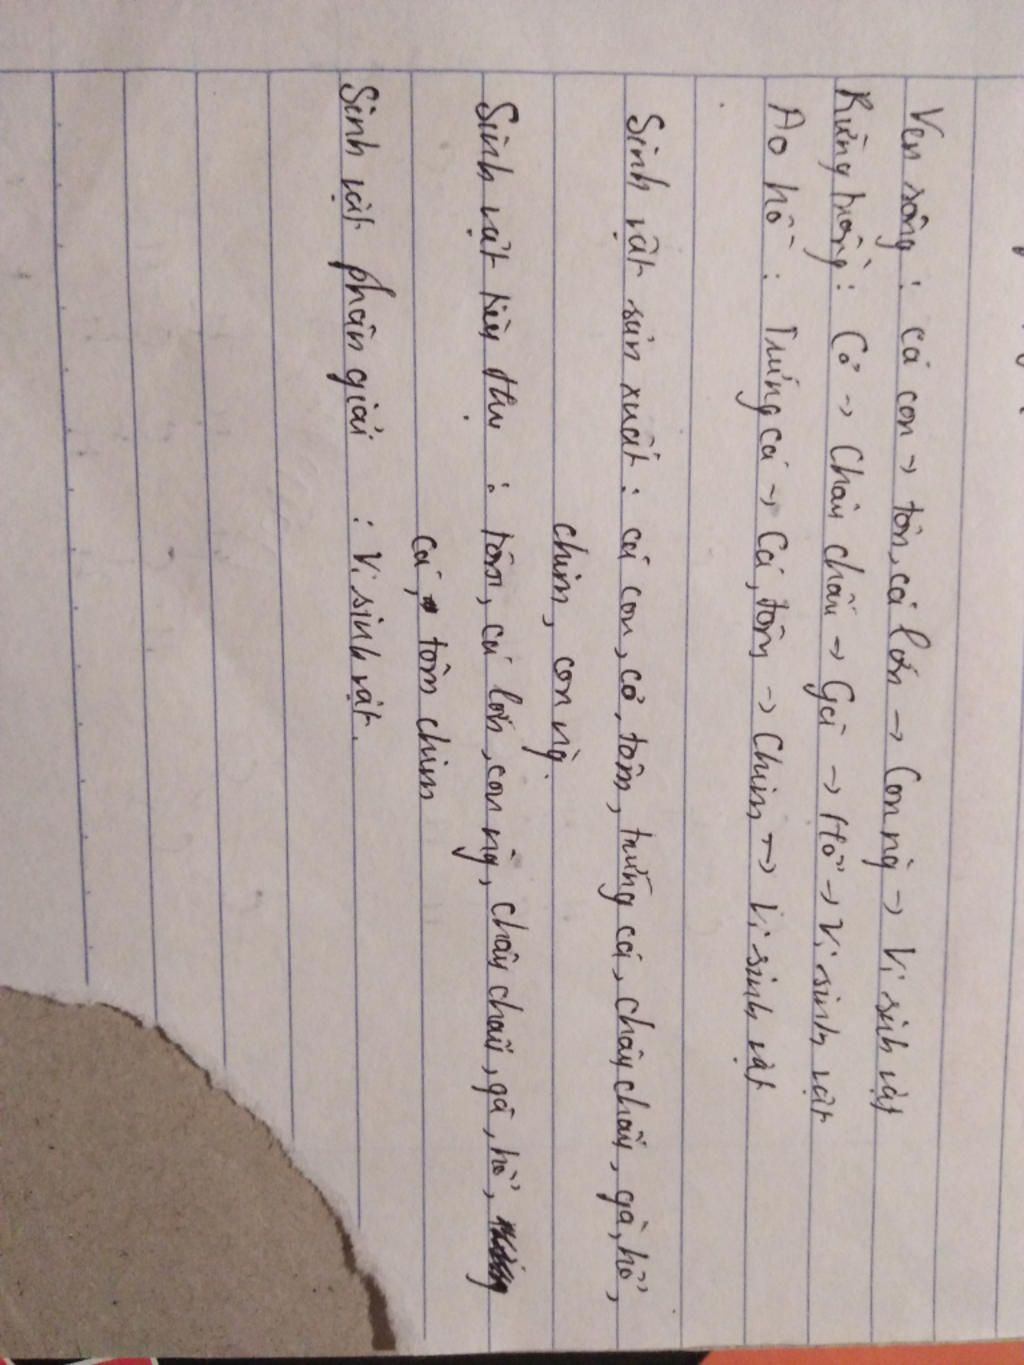 Ven sông : cá con → tôm, cá lớn → Con người → Vi sinh vật
Rừng trồng : Cỏ → Châu chấu → Gà → Hổ → Vi sinh vật
Ao hồ : Trứng cá → Cá, tôm → Chim → Vi sinh vật
Sinh vật sản xuất : cá con, cỏ, tôm, trứng cá, châu chấu, gà, hổ,
chim, con ng.
Sinh vật tiêu thụ : tôm, cá lớn, con ng, châu chấu, gà, hổ,
cá, tôm chim
Sinh vật phân giải : Vi sinh vật.